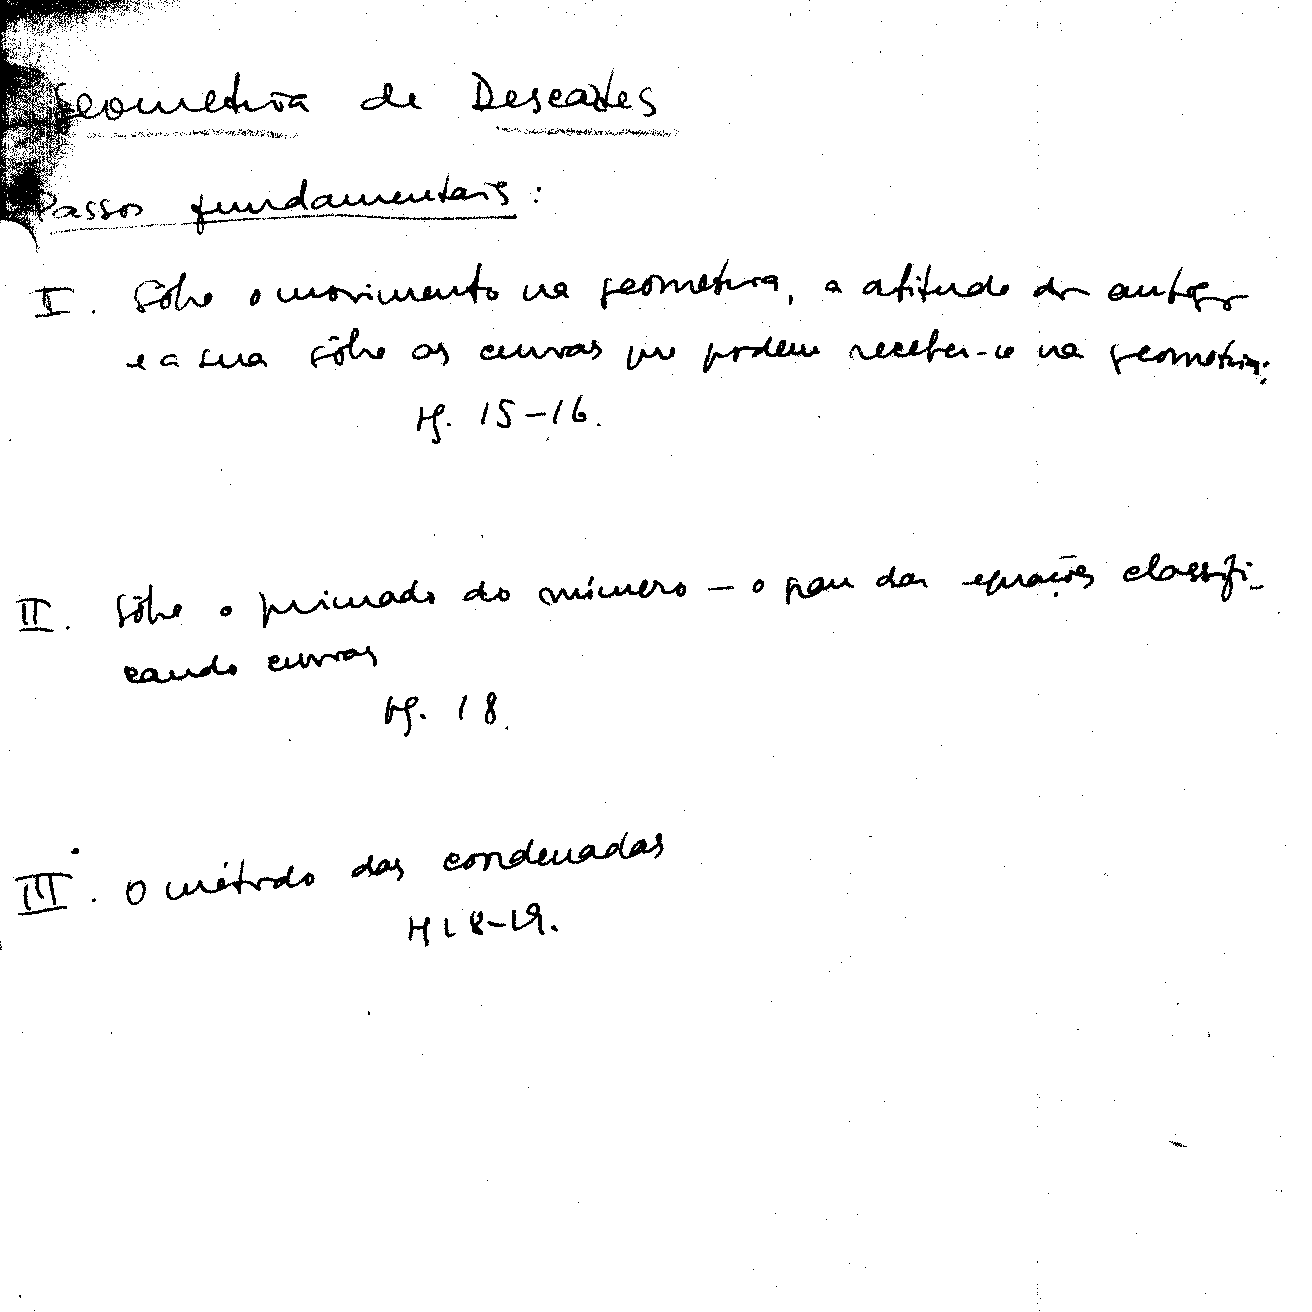 Geometria de Descartes
Passos fundamentais:
I. Sôbre o movimento na geometria, a atitude dos antigos
e a sua sôbre as curvas que podem receber-se na geometria:
pg. 15-16.
II. Sôbre o primado do número — o grau das equações classifi-
cando curvas
pg. 18.
III. O método das coordenadas
pg 18-19.